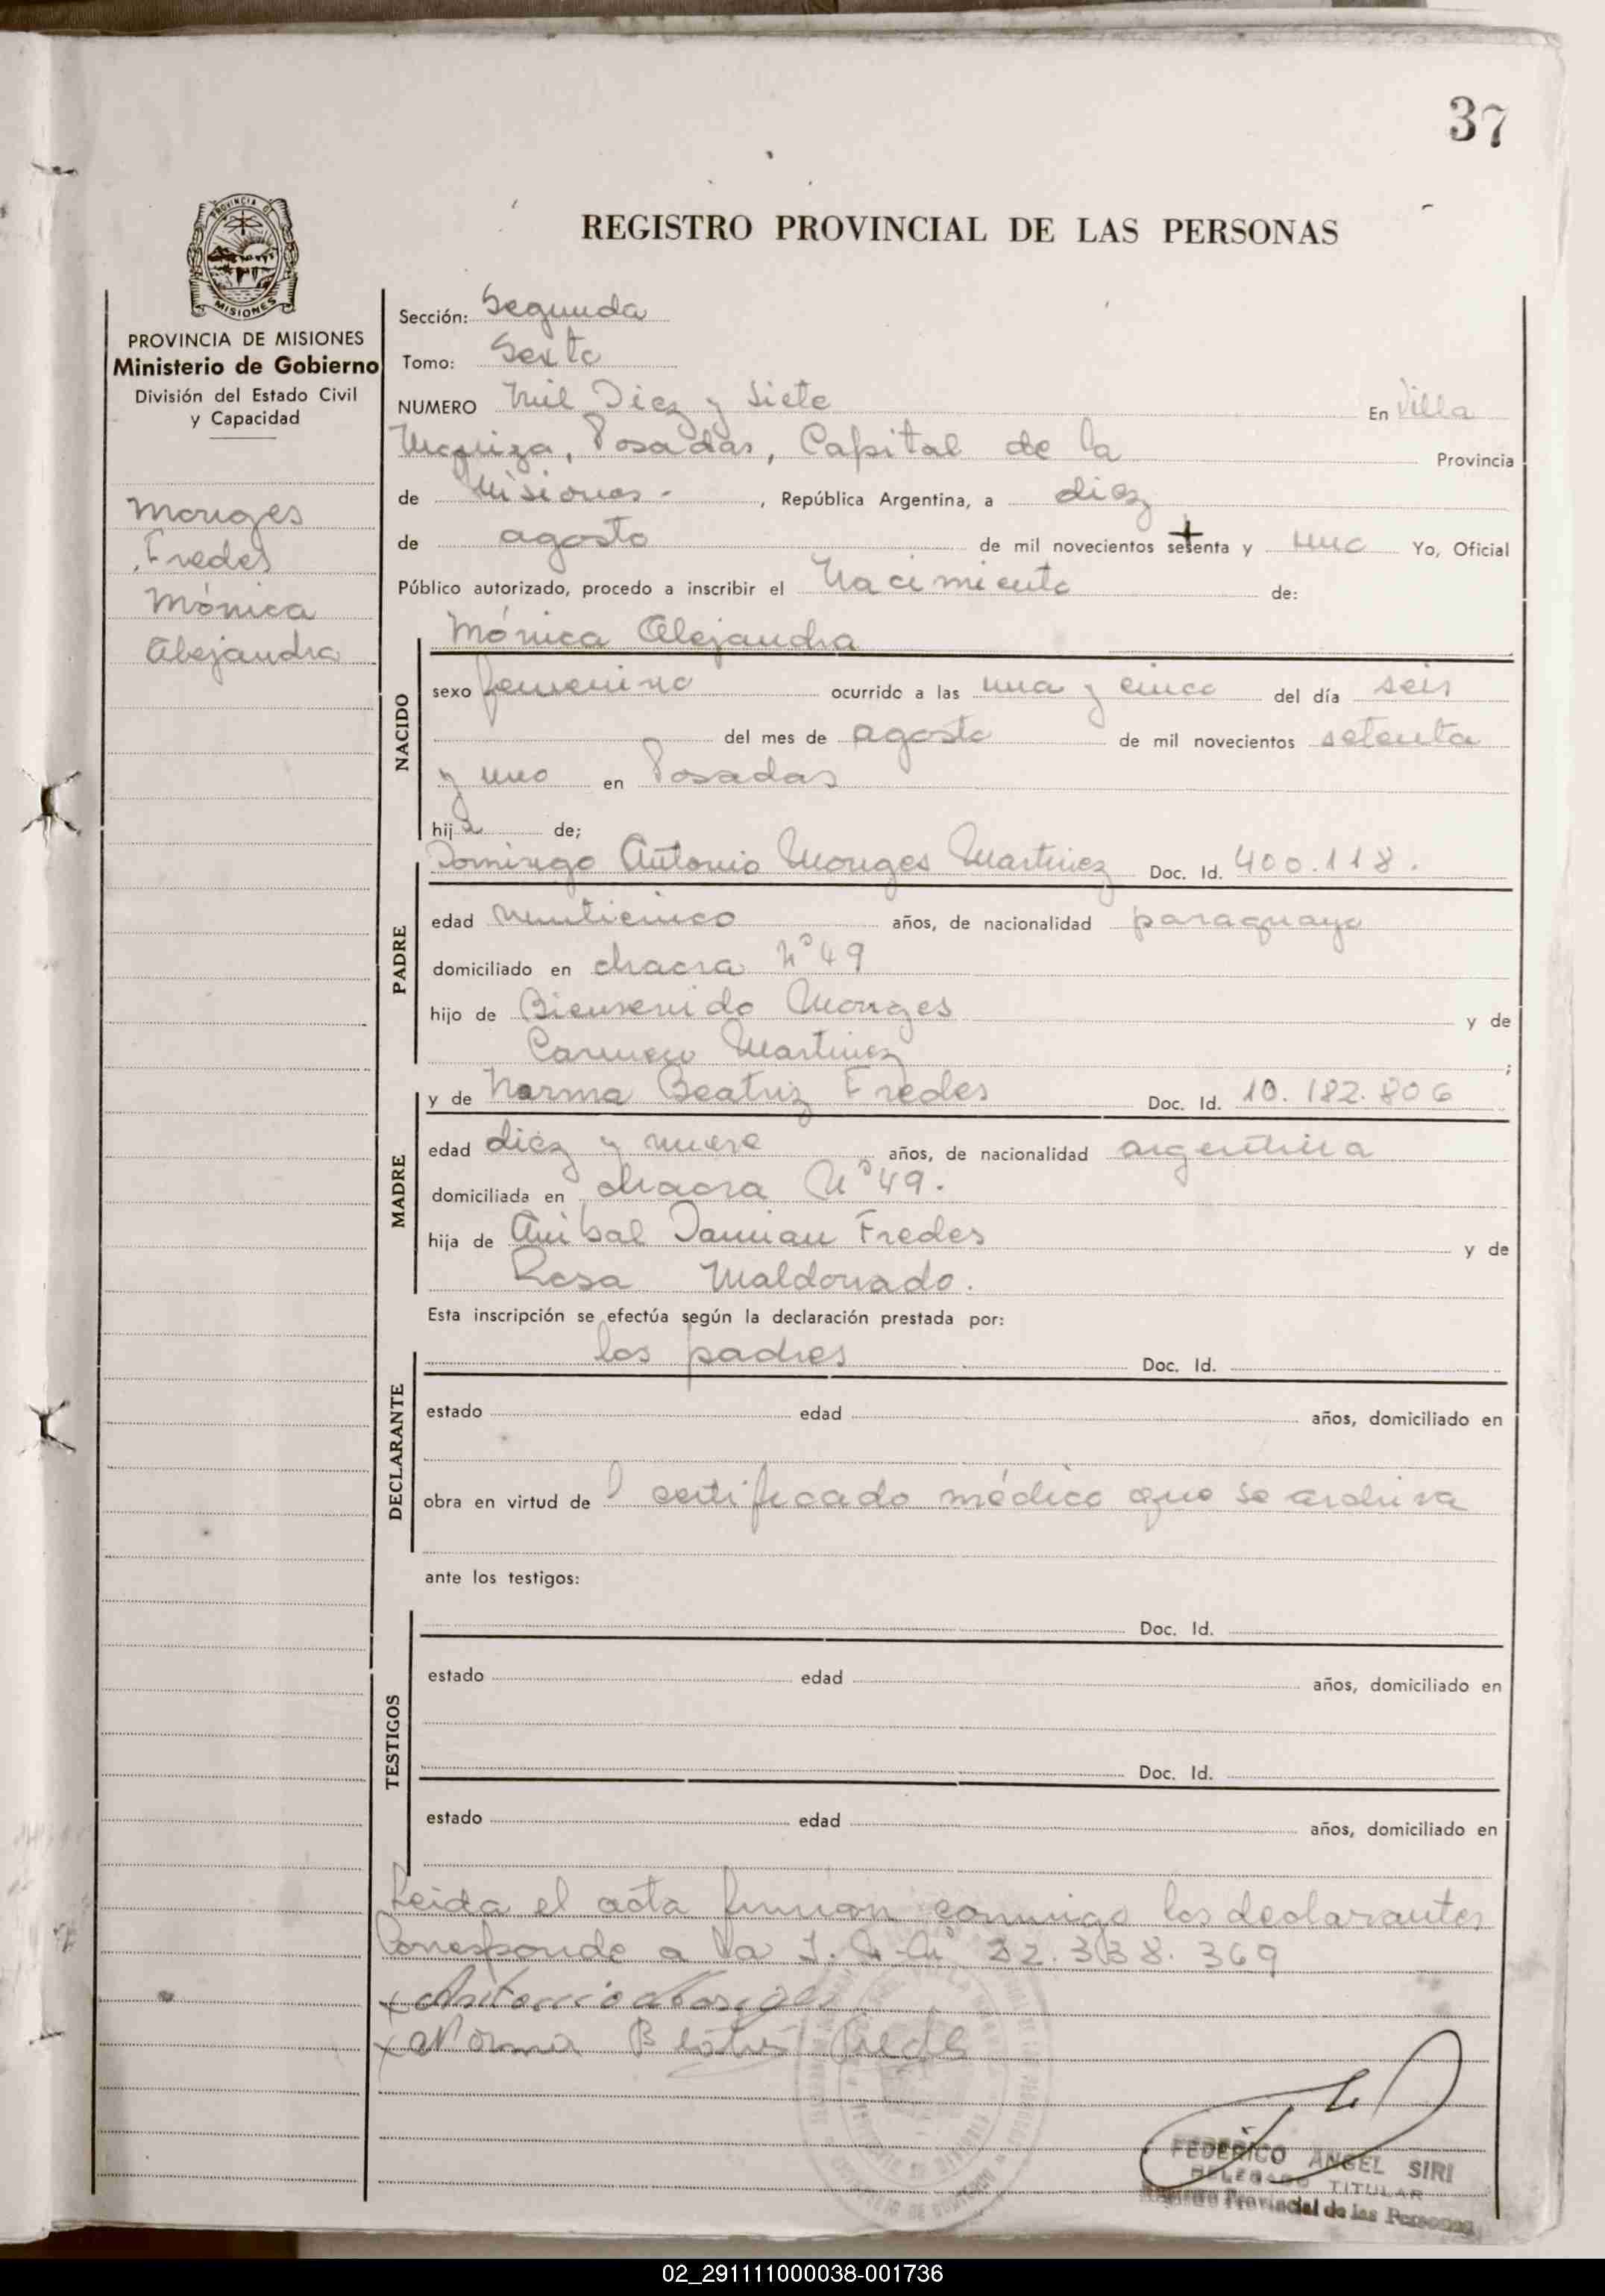 37
REGISTRO PROVINCIAL DE LAS PERSONAS
PROVINCIA DE MISIONES
MISIONES
PROVINCIA DE MISIONES
Ministerio de Gobierno
División del Estado Civil
y Capacidad
Monges
Fredes
Mónica
Alejandra
Sección: Segunda
Tomo: Sexto
NUMERO Mil Diez y siete En Villa
Urquiza, Posadas, Capital de la Provincia
de Misiones - , República Argentina, a diez
de agosto de mil novecientos setenta y uno Yo, Oficial
Público autorizado, procedo a inscribir el Nacimiento de:
Mónica Alejandra
NACIDO
sexo femenino ocurrido a las una y cinco del día seis
del mes de agosto de mil novecientos setenta
y uno en Posadas
hija de;
Domingo Antonio Monges Martinez Doc. Id. 400.118.
PADRE
edad veinticinco años, de nacionalidad paraguaya
domiciliado en chacra Nº 49
hijo de Bienvenido Monges y de
Carmen Martinez ;
y de Norma Beatriz Fredes Doc. Id. 10.182.806
MADRE
edad diez y nueve años, de nacionalidad argentina
domiciliada en chacra Nº 49.
hija de Anibal Damian Fredes y de
Rosa Maldonado.
Esta inscripción se efectúa según la declaración prestada por:
los padres Doc. Id.
DECLARANTE
estado edad años, domiciliado en
obra en virtud de l certificado médico que se archiva
ante los testigos:
Doc. Id.
TESTIGOS
estado edad años, domiciliado en
Doc. Id.
estado edad años, domiciliado en
Leida el acta firman conmigo los declarantes
Corresponde a la 22.338.369
x Antonio Monges
x Norma Beatris Fredes
FEDERICO ANGEL SIRI
DELEGADO TITULAR
Registro Provincial de las Personas
02_291111000038-001736